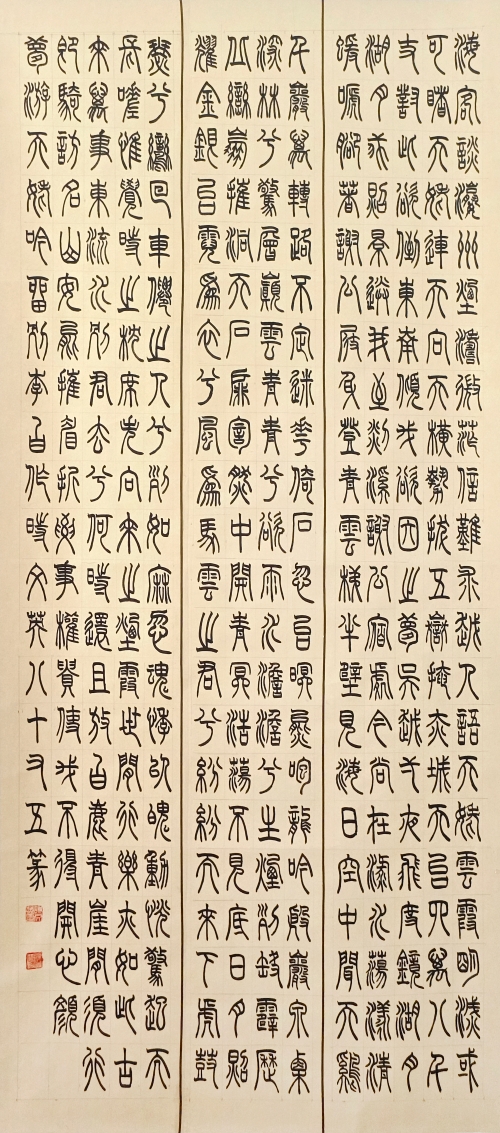 海客談瀛洲煙濤微茫信難求越人語天姥雲霞明滅或
可睹天姥連天向天橫勢拔五嶽掩赤城天台四萬八千
丈對此欲倒東南傾我欲因之夢吳越一夜飛度鏡湖月
湖月照景送我至剡溪謝公宿處今尚在淥水蕩漾清
猨啼腳著謝公屐身登青雲梯半壁見海日空中聞天雞
千巖萬轉路不定迷花倚石忽已暝熊咆龍吟殷巖泉栗
深林兮驚層巔雲青青兮欲雨水澹澹兮生煙列缺霹靂
丘巒崩摧洞天石扉訇然中開青冥浩蕩不見底日月照
耀金銀台霓為衣兮風為馬雲之君兮紛紛而來下虎鼓
瑟兮鸞回車仙之人兮列如麻忽魂悸以魄動怳驚起而
長嗟惟覺時之枕席失向來之煙霞世間行樂亦如此古
來萬事東流水別君去兮何時還且放白鹿青崖間須行
即騎訪名山安能摧眉折腰事權貴使我不得開心顏
夢游天姥吟留別李白作時文英八十又五篆